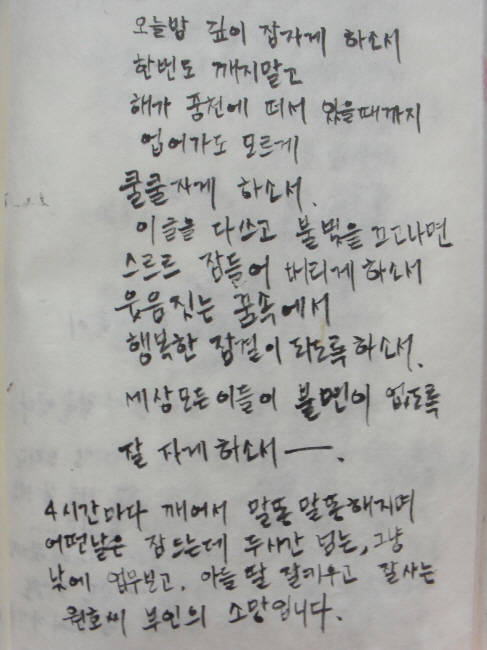 오늘밤 깊이 잠자게 하소서
한번도 깨지말고
해가 중천에 떠서 있을때까지
업어가도 모르게
쿨쿨자게 하소서.
이글을 다쓰고 불빛을 끄고나면
스르르 잠들어 버리게하소서
웃음짓는 꿈속에서
행복한 잠결이 되도록하소서.
세상모든이들이 불면이 없도록
잘 자게하소서ㅡ.
4시간마다 깨어서 말똥말똥해지며
어떤날은 잠드는데 두시간 넘는, 그냥
낮에 업무보고, 아들 딸 잘키우고 잘사는
권호씨 부인의 소망입니다.